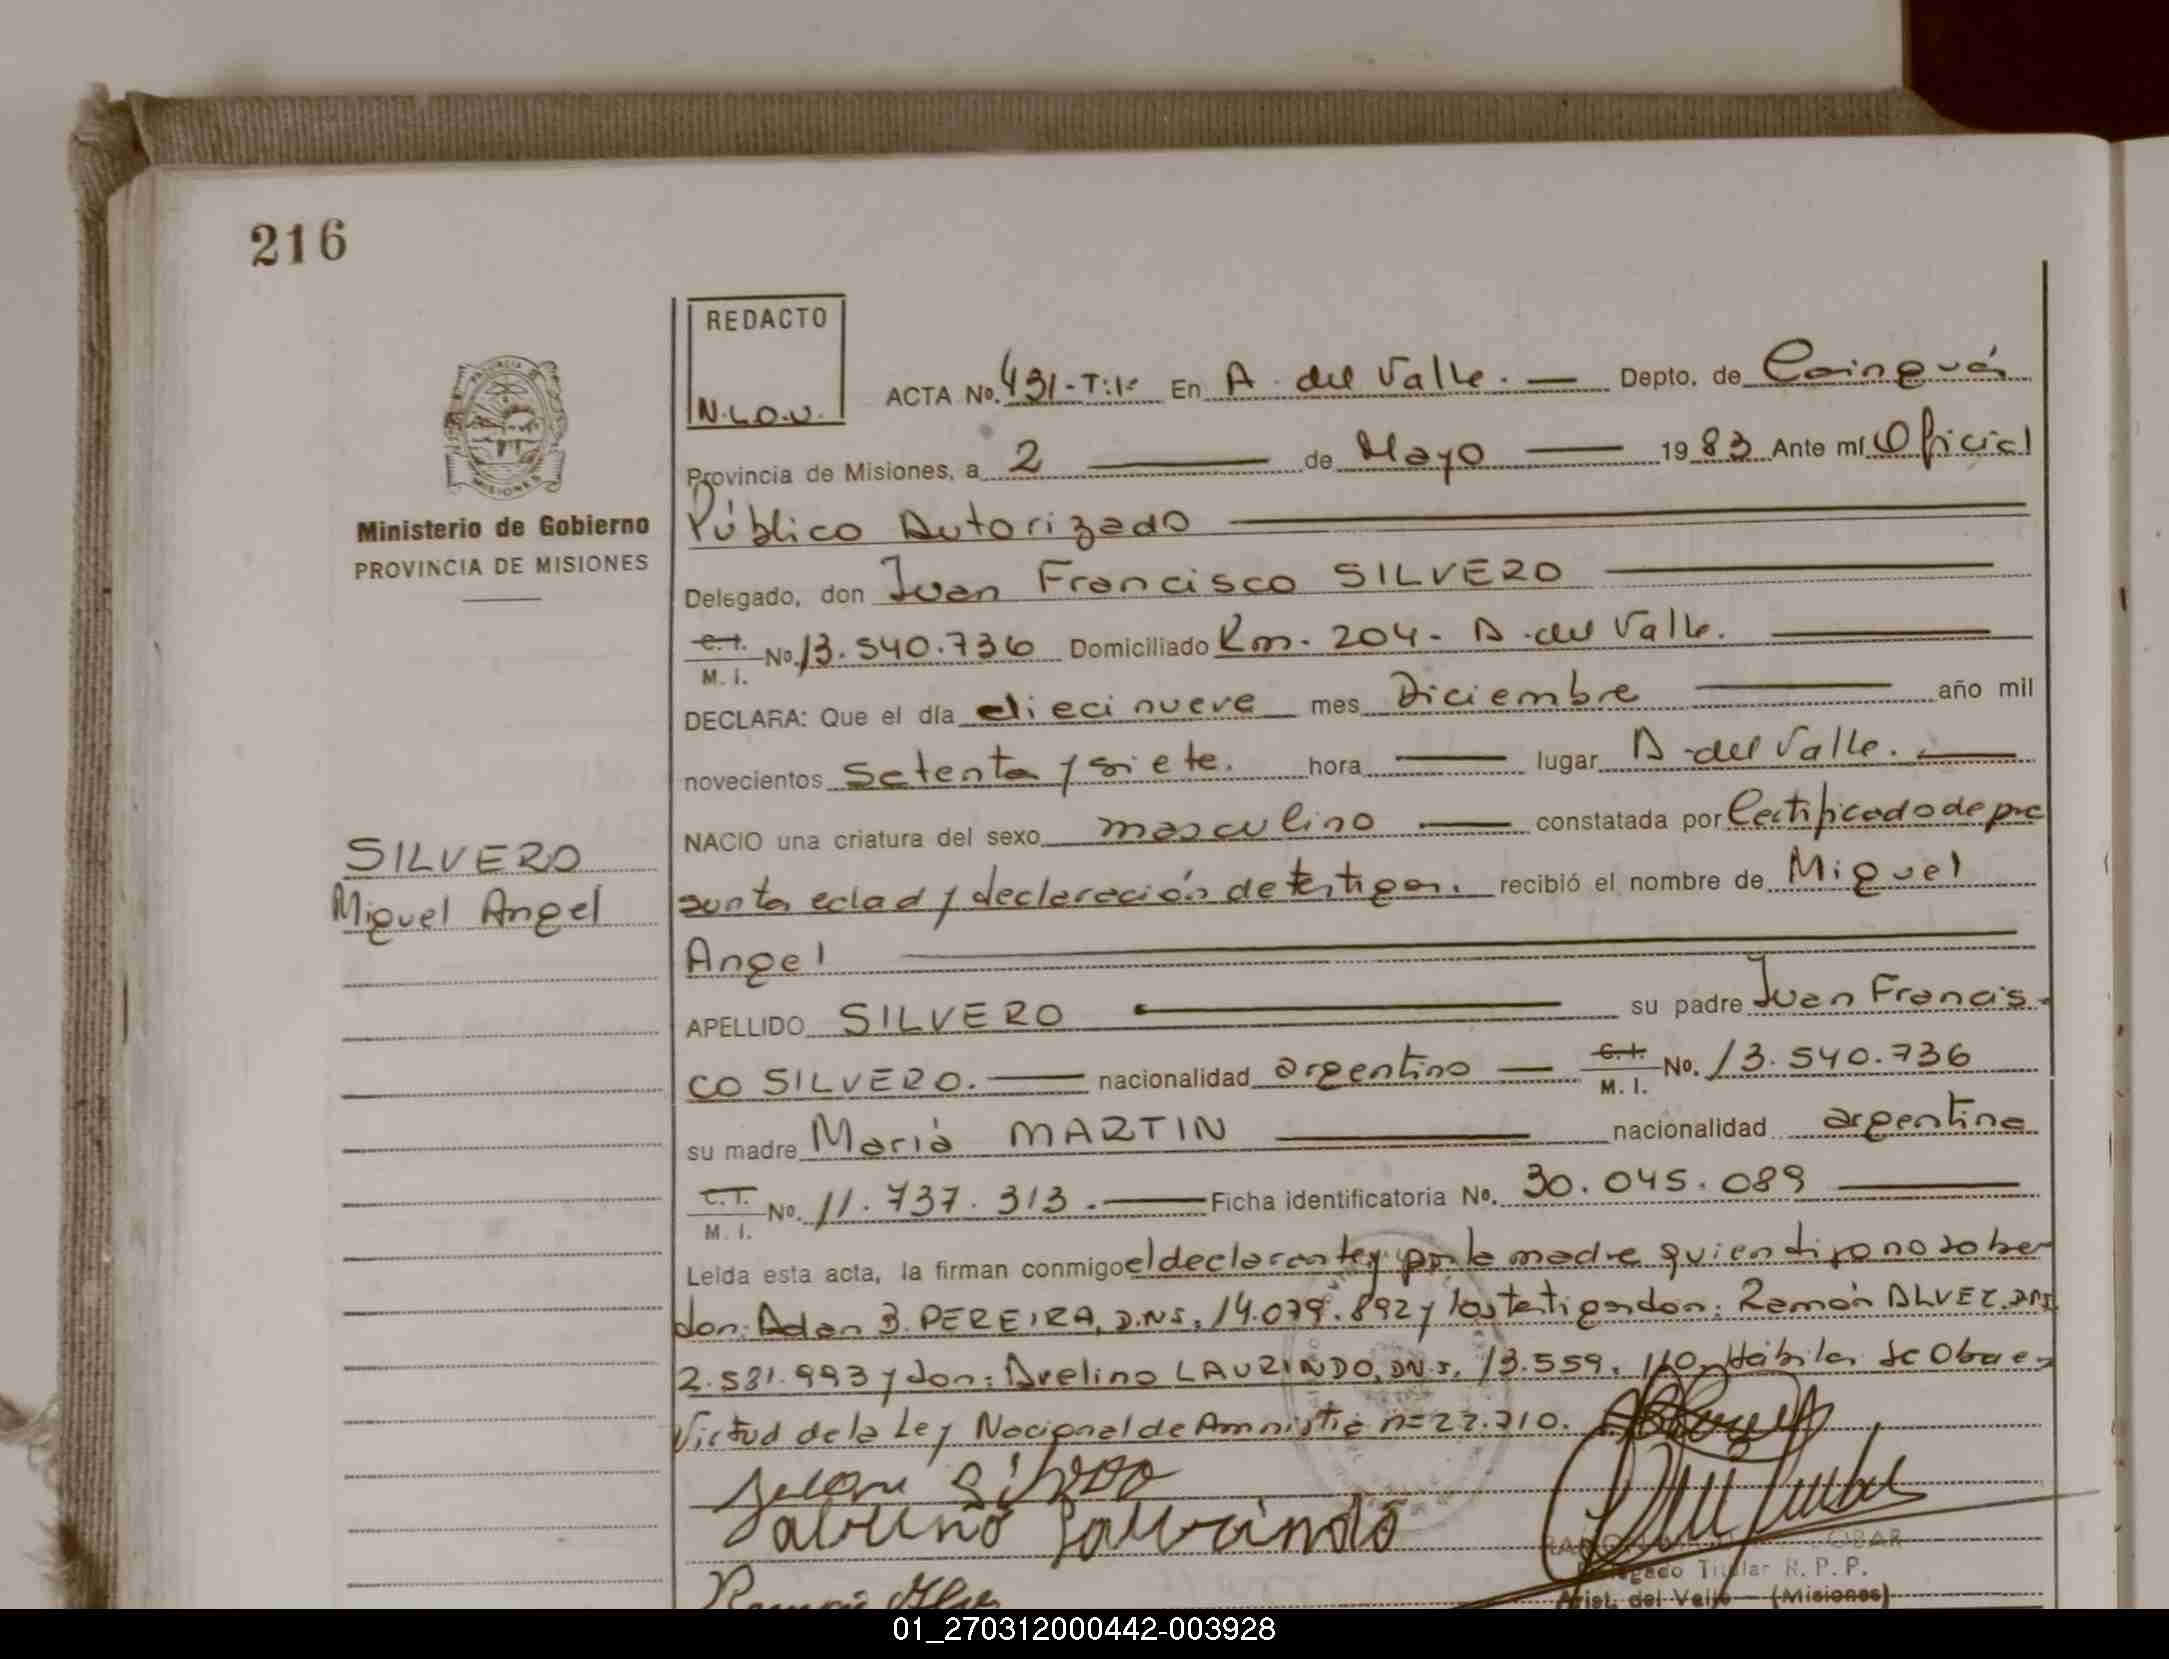 216
REDACTO
N.L.O.U.
ACTA No. 431-T:1- En A. del Valle. Depto. de Cainguás
Provincia de Misiones, a 2 de Mayo 1983 Ante mí Oficial
Público Autorizado
Ministerio de Gobierno
PROVINCIA DE MISIONES
Delegado, don Juan Francisco SILVERO
C.I. M.I. No. 13.540.736 Domiciliado Km. 204 - A. del Valle.
DECLARA: Que el día diecinueve mes Diciembre año mil
novecientos setenta y siete. hora lugar A. del Valle.
NACIO una criatura del sexo masculino constatada por Certificado de pre
SILVERO
Miguel Angel
sunta edad y declaración de testigos. recibió el nombre de Miguel
Angel
APELLIDO SILVERO su padre Juan Francis-
co SILVERO. nacionalidad argentino C.I. M.I. No. 13.540.736
su madre María MARTIN nacionalidad argentina
C.I. M.I. No. 11.737.313. Ficha identificatoria No. 30.045.089
Leída esta acta, la firman conmigo el declarante y por la madre quien dijo no saber
don: Adan B. PEREIRA, D.N.I. 14.079.892 y los testigos don: Ramón ALVEZ. D.N.I.
2.581.993 y don: Avelino LAURINDO, D.N.I. 13.559.110, Hábiles. Se Obra en
Virtud de la Ley Nacional de Amnistía n= 22.710.
Delegado Titular R. P. P.
Arist. del Valle (Misiones)
01_270312000442-003928